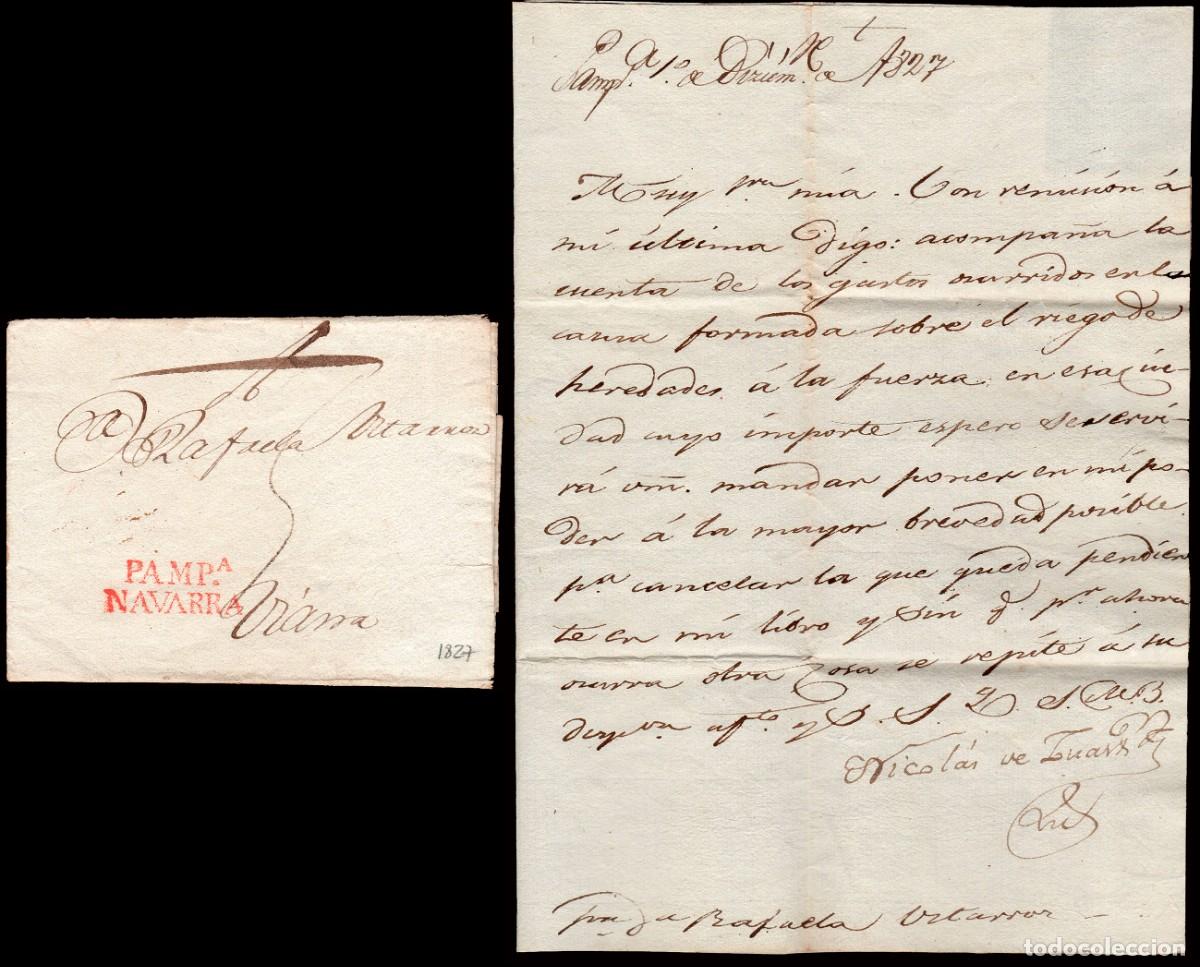 Dª Rafaela Vstarroz
PAMP.ᴬ
NAVARRA
Viana
1827
Pampª 1º de Diziem.ᵉ de 1827
Muy srª mia. Con remision á
mi última digo: acompaña la
cuenta de los gastos ocurridos en la
causa formada sobre el riego de
heredades á la fuerza en esa ciu-
dad cuyo importe espero se servi-
rá vm. mandar poner en mi po-
der á la mayor brevedad posible
pª cancelar la que queda pendien
te en mi libro y sin q pr ahora
ocurra otra cosa se repite á su
dispon afto y S. S. Q. S. M. B.
Nicolás de
Srª Dª Rafaela Vstarroz
todocoleccion